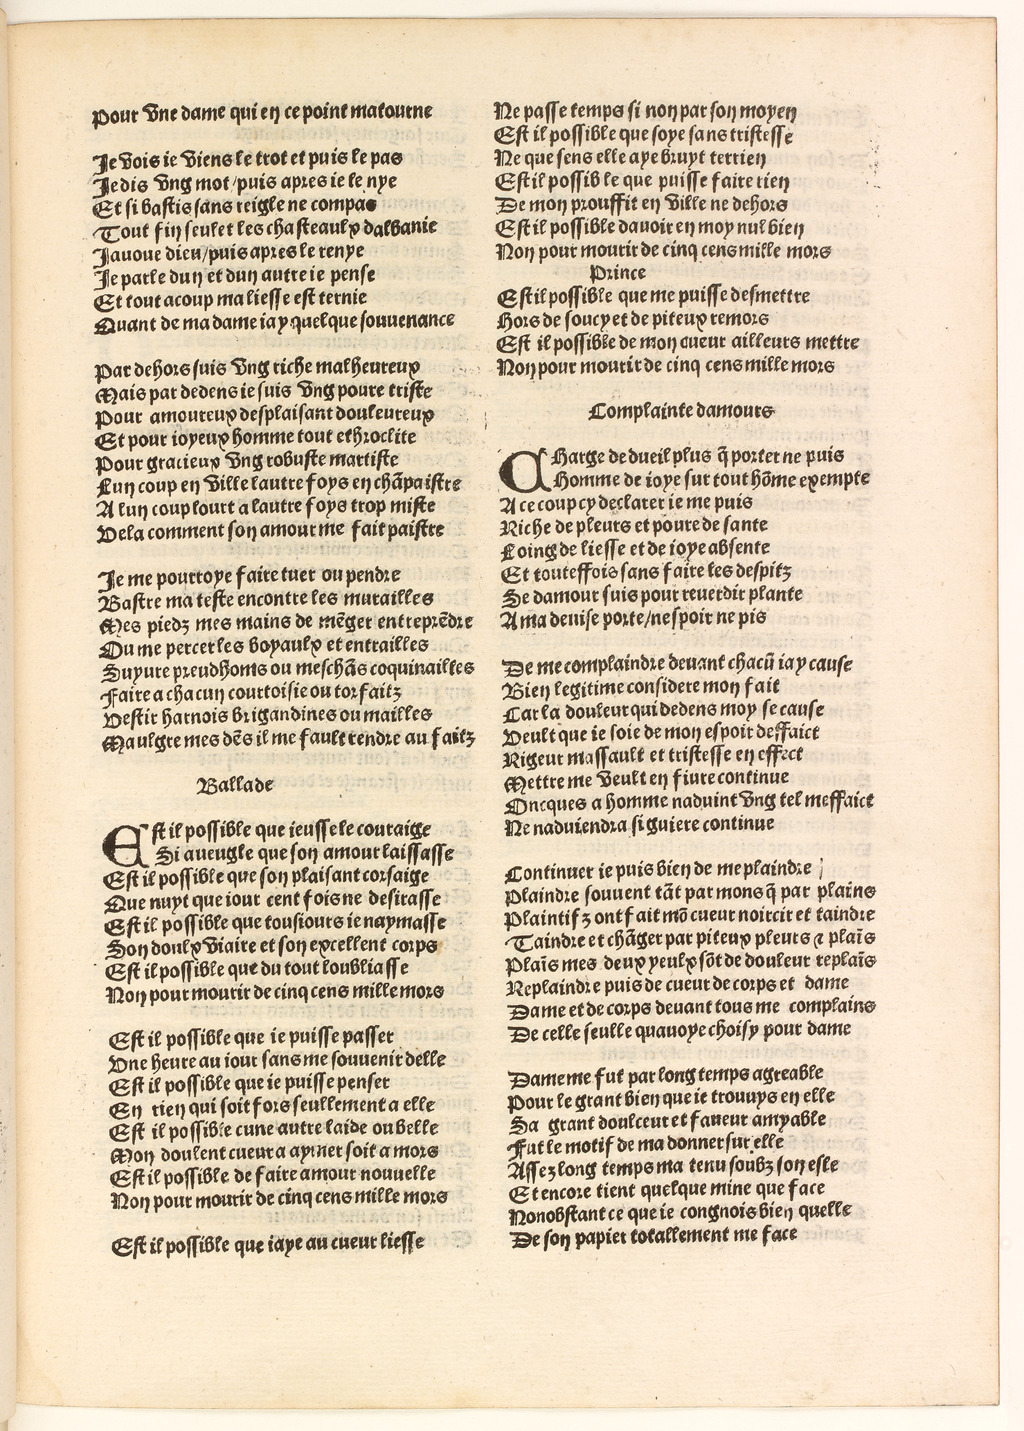 Pour vne dame qui en ce point matourne
Je vois ie viens le trot et puis le pas
Je dis vng mot/puis apres ie le nye
Et si bastis sans reigle ne compas
Tout fin seulet les chasteaulx dalbanie
Jauoue dieu/puis apres le renye
Je parle dun et dun autre ie pense
Et tout acoup ma liesse est ternie
Quant de ma dame iay quelque souuenance
Par dehors suis vng riche malheureux
Mais par dedens ie suis vng poure triste
Pour amoureux desplaisant douleureux
Et pour ioyeux homme tout ethroclite
Pour gracieux vng robuste martiste
Lun coup en ville lautre foys en chāpaistre
A lun coup lourt a lautre foys trop miste
Vela comment son amour me fait paistre
Je me pourroye faire tuer ou pendre
Bastre ma teste encontre les murailles
Mes piedz mes mains de mēger entreprēdre
Ou me percer les boyaulx et entrailles
Suyure preudhoms ou meschās coquinailles
Faire a chacun courtoisie ou torfaitz
Vestir harnois brigandines ou mailles
Maulgre mes dēs il me fault rendre au faitz
Ballade
Est il possible que ieusse le couraige
Si aueugle que son amour laissasse
Est il possible que son plaisant corsaige
Que nuyt que iour cent fois ne desirasse
Est il possible que tousiours ie naymasse
Son doulx viaire et son excellent corps
Est il possible que du tout loubliasse
Non pour mourir de cinq cens mille mors
Est il possible que ie puisse passer
Vne heure au iour sans me souuenir delle
Est il possible que ie puisse penser
En rien qui soit fors seullement a elle
Est il possible cune autre laide ou belle
Mon doulent cueur a aymer soit a mors
Est il possible de faire amour nouuelle
Non pour mourir de cinq cens mille mors
Est il possible que iaye au cueur liesse
Ne passe temps si non par son moyen
Est il possible que soye sans tristesse
Ne que sens elle aye bruyt terrien
Est il possible que puisse faire rien
De mon prouffit en ville ne dehors
Est il possible dauoir en moy nul bien
Non pour mourir de cinq cens mille mors
Prince
Est il possible que me puisse desmettre
Hors de soucy et de piteux remors
Est il possible de mon cueur ailleurs mettre
Non pour mourir de cinq cens mille mors
Complainte damours
CHarge de dueil plus q̄ porter ne puis
Homme de ioye sur tout hōme exempte
A ce coup cy declarer ie me puis
Riche de pleurs et poure de sante
Loing de liesse et de ioye absente
Et touteffois sans faire les despitz
Se damour suis pour reuerdir plante
A ma deuise porte/nespoir ne pis
De me complaindre deuant chacū iay cause
Bien legitime considere mon fait
Car la douleur qui dedens moy se cause
Veult que ie soie de mon espoir deffaict
Rigeur massault et tristesse en effect
Mettre me veult en fiure continue
Oncques a homme naduint vng tel meffaict
Ne naduiendra si guiere continue
Continuer ie puis bien de me plaindre
Plaindre souuent tāt par mons q̄ par plains
Plaintifz ont fait mō cueur noircir et taindre
Taindre et chāger par piteux pleurs ⁊ plaīs
Plaīs mes deux yeulx sōt de douleur replaīs
Replaindre puis de cueur de corps et dame
Dame et de corps deuant tous me complains
De celle seulle quauoye choisy pour dame
Dame me fut par long temps agreable
Pour le grant bien que ie trouuys en elle
Sa grant doulceur et faueur amyable
Fut le motif de ma donner sur elle
Assez long temps ma tenu soubz son esle
Et encore tient quelque mine que face
Nonobstant ce que ie congnois bien quelle
De son papier totallement me face